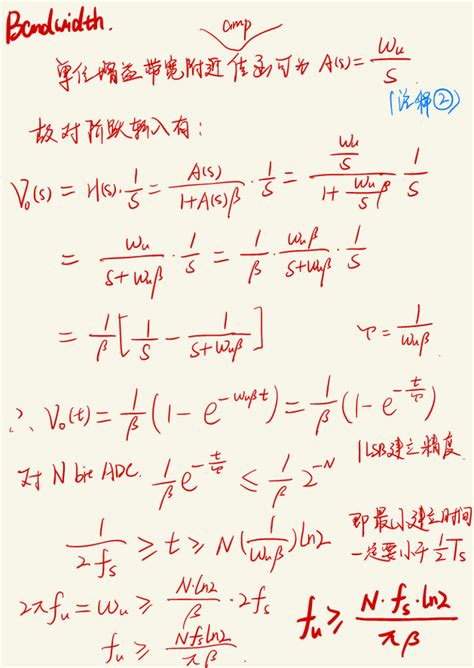 Bandwidth.
amp
单位增益带宽附近传函可为 A(s) = ωu/s
(注释②)
故对阶跃输入有:
Vo(s) = H(s)·1/s = A(s)/(1+A(s)β) · 1/s = (ωu/s)/(1+(ωu/s)β) · 1/s
= ωu/(s+ωuβ) · 1/s = 1/β · ωuβ/(s+ωuβ) · 1/s
= 1/β [1/s − 1/(s+ωuβ)] τ = 1/(ωuβ)
∴ Vo(t) = 1/β (1 − e^(−ωuβt)) = 1/β (1 − e^(−t/τ))
对 N bit ADC. 1/β e^(−t/τ) ≤ 1/β 2^(−N) 1LSB建立精度.
1/(2fs) ≥ t ≥ N(1/(ωuβ))ln2
即最小建立时间
一定要小于 1/2 Ts
2πfu = ωu ≥ N·ln2/β · 2fs
fu ≥ Nfsln2/(πβ)
fu ≥ N·fs·ln2/(πβ)